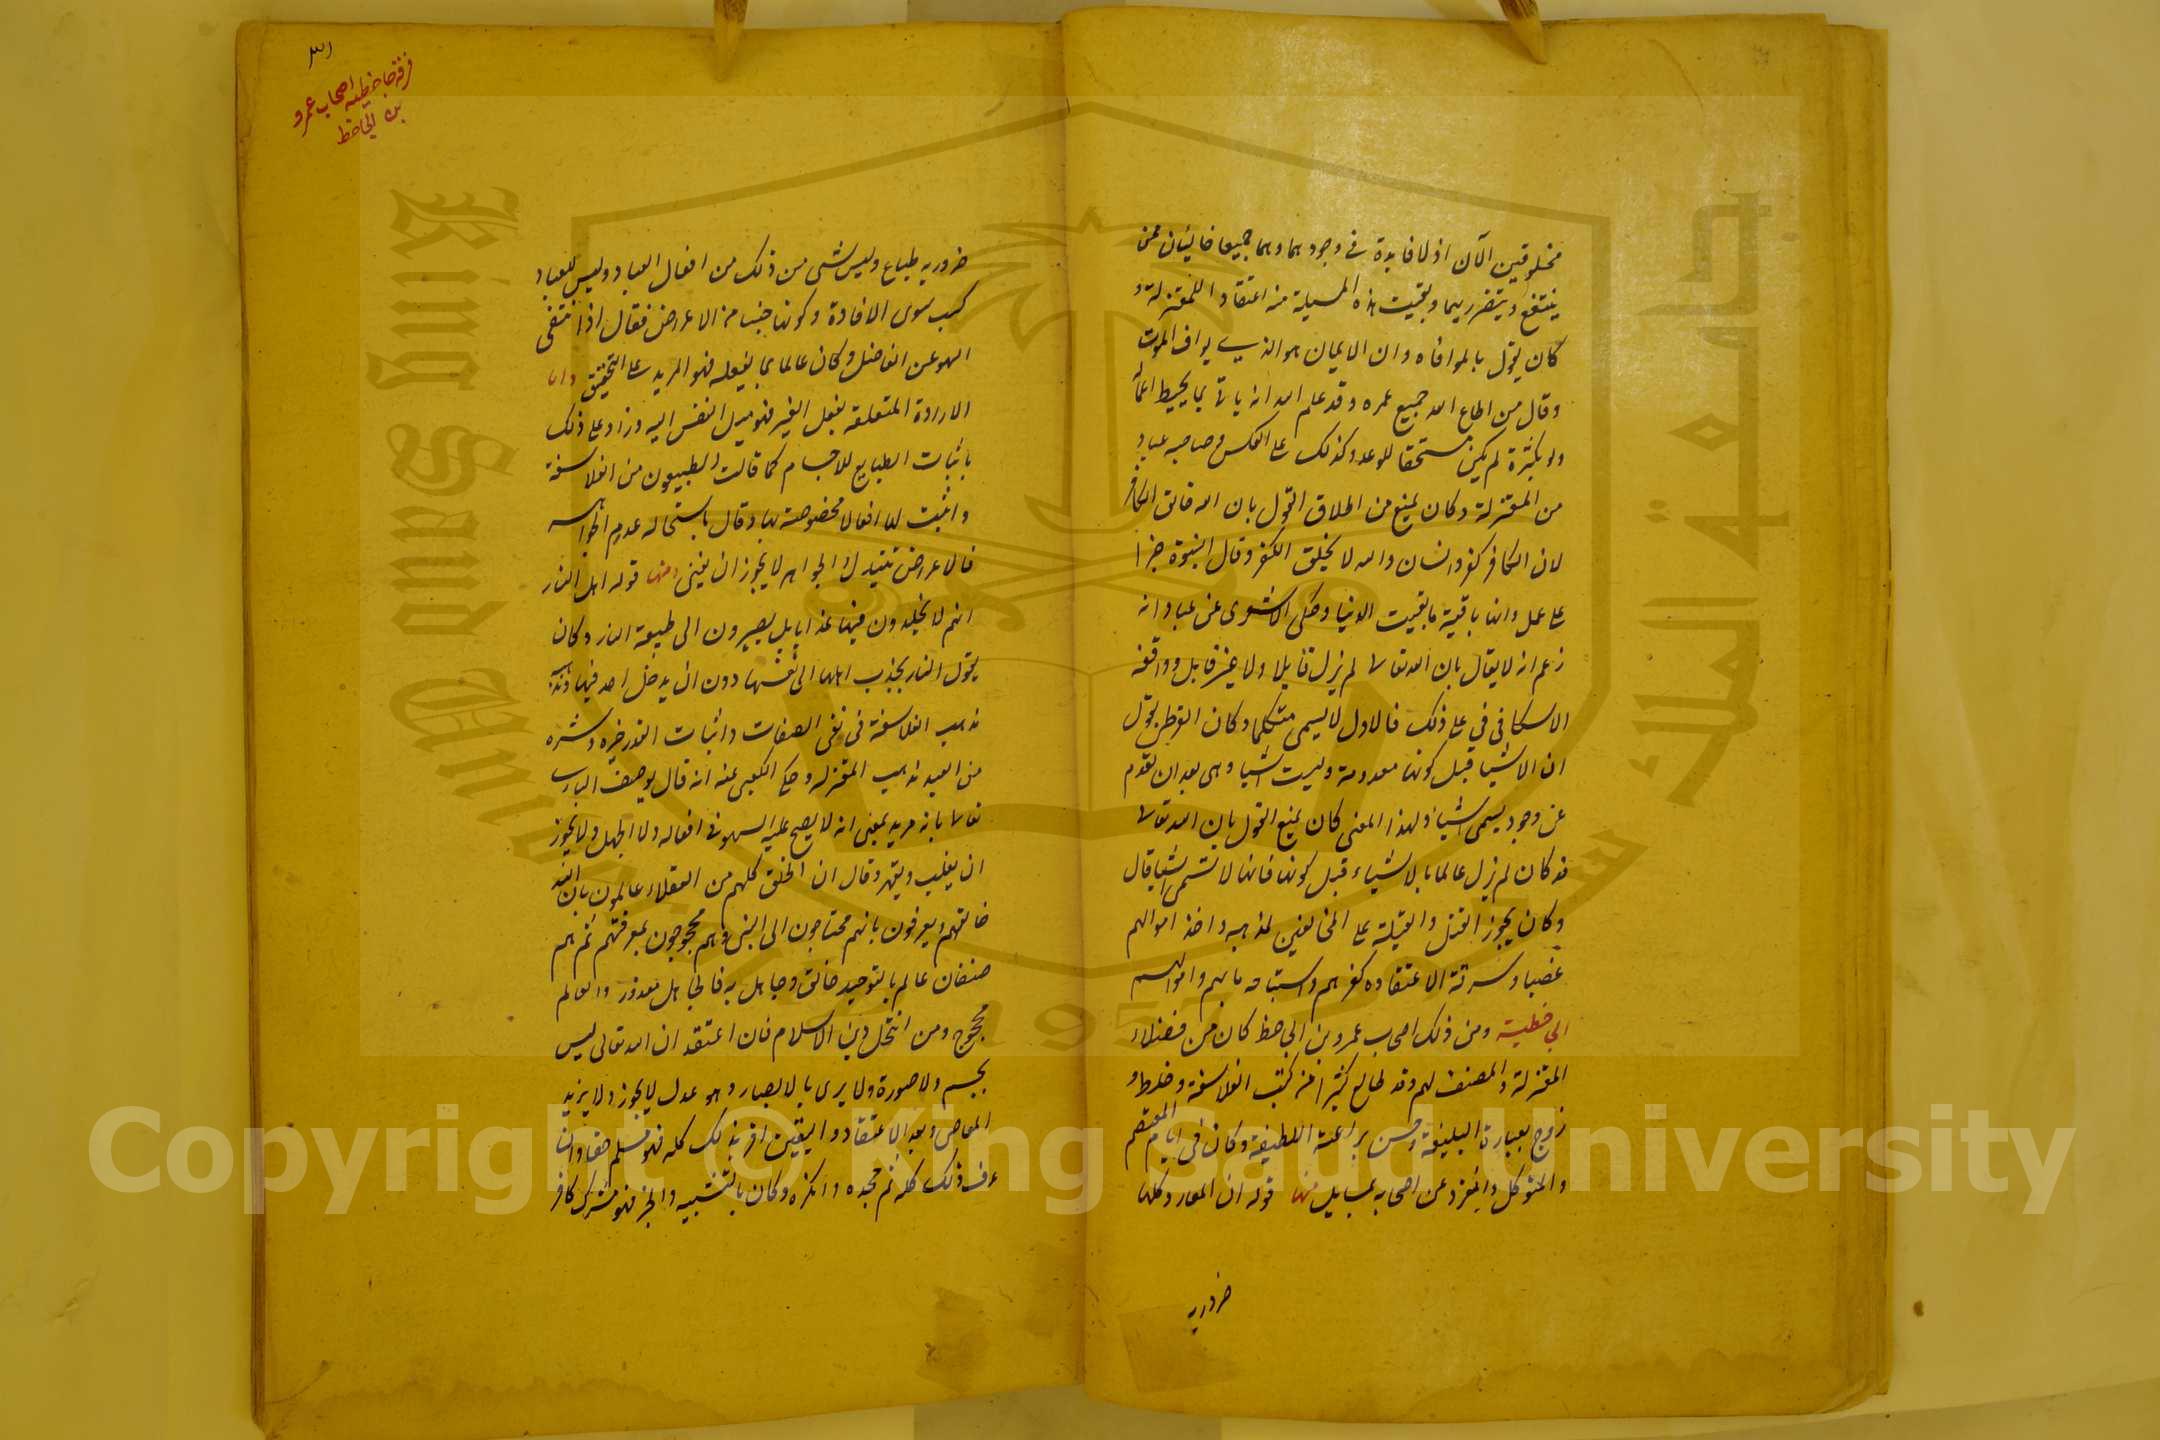 مخلوقتين الآن اذ لا فايدة فى وجودهما وهما جميعا خاليتان ممن
ينتفع ويتضرر بهما وبقيت هذه المسيلة منه اعتقادا للمعتزلة و
كان يقول بالموافاه وان الايمان هو الذى يوافى الموت
وقال من اطاع الله جميع عمره وقد علم الله انه ياتى بما يحبط اعماله
ولو بكبيرة لم يكن مستحقا للوعد وكذلك على العكس وصاحبه عباد
من المعتزلة وكان يمنع من اطلاق القول بان الله خالق الكافر
لان الكافر كفر وانسان والله لا يخلق الكفر وقال النبوة جزا
على عمل وانها باقية ما بقيت الدنيا وحكى الاشعرى عن عباد انه
زعم انه لا يقال بان الله تعالى لم يزل قايلا ولا غير قايل ووافقه
الاسكافى فى على ذلك قالا ولا يسمى متكلما وكان الفوطى يقول
ان الاشيا قبل كونها معدومة وليست اشيا وهى بعد ان تعدم
عن وجود يسمى اشيا ولهذا المعنى كان يمنع القول بان الله تعالى
قد كان لم يزل عالما بالاشياء قبل كونها فانها لا تسمى اشيا قال
وكان يجوز القتل والغيلة على المخالفين لمذهبه واخذ اموالهم
غصبا وسرقة الاعتقاده كفرهم واستباحة مابهم واموالهم
الجاحظية ومن ذلك اصحاب عمرو بن الجاحظ كان من فضلاء
المعتزلة والمصنف لهم وقد طالع كثيرا من كتب الفلاسفة وخلط و
زوج بعبارة البليغة وحسن براعته اللطيفة وكان فى ايام المعتصم
والمتوكل وانفرد عن اصحابه بمسايل منها قوله ان المعارف كلها
ضرورية
٣١
فرقه جاحظيه اصحاب عمرو
بن الجاحظ
ضروريه طباع وليس شى من ذلك من افعال العباد وليس للعباد
كسب سوى الارادة وكونها جنسا من الاعراض فقال اذا انتفى
السهو عن الفاعل وكان عالما بما يفعله فهو المريد على التحقيق واما
الارادة المتعلقه بفعل الغير فهو ميل النفس اليه وزاد على ذلك
باثبات الطبايع للاجسام كما قالت الطبيعيون من الفلاسفة
واثبت لها افعالا مخصوصة بها وقال باستحاله عدم الجواهر
فالاعراض تتبدل والجواهر لا يجوز ان يفنى ومنها قوله اهل النار
انهم لا يخلدون فيها عذابا بل يصيرون الى طبيعة النار وكان
يقول النار يجذب اهلها الى نفسها دون ان يدخل احد فيها ومذهبه
مذهب الفلاسفة فى نفى الصفات واثبات القدر خيره وشره
من العبد مذهب المعتزله وحكى الكعبى عنه انه قال يوصف البارى
تعالى بانه مريد بمعنى انه لا يصح عليه السهو فى افعاله ولا الجهل ولا يجوز
ان يغلب ويقهر وقال ان الخلق كلهم من العقلاء عالمون بان الله
خالقهم ويعرفون بانهم محتاجون الى النبى وهم محجوجون بمعرفتهم ثم هم
صنفان عالم بالتوحيد خالق وجاهل به فالجاهل معذور والعالم
محجوج ومن انتحل دين الاسلام فان اعتقد ان الله تعالى ليس
بجسم ولا صورة ولا يرى بالابصار وهو عدل لا يجوز ولا يريد
المعاصى وبعد الاعتقاد واليقين اقر بذلك كله فهو مسلم حقا وان
عرف ذلك كله ثم جحده وانكره وكان بالتشبيه والجبر فهو مشرك كافر